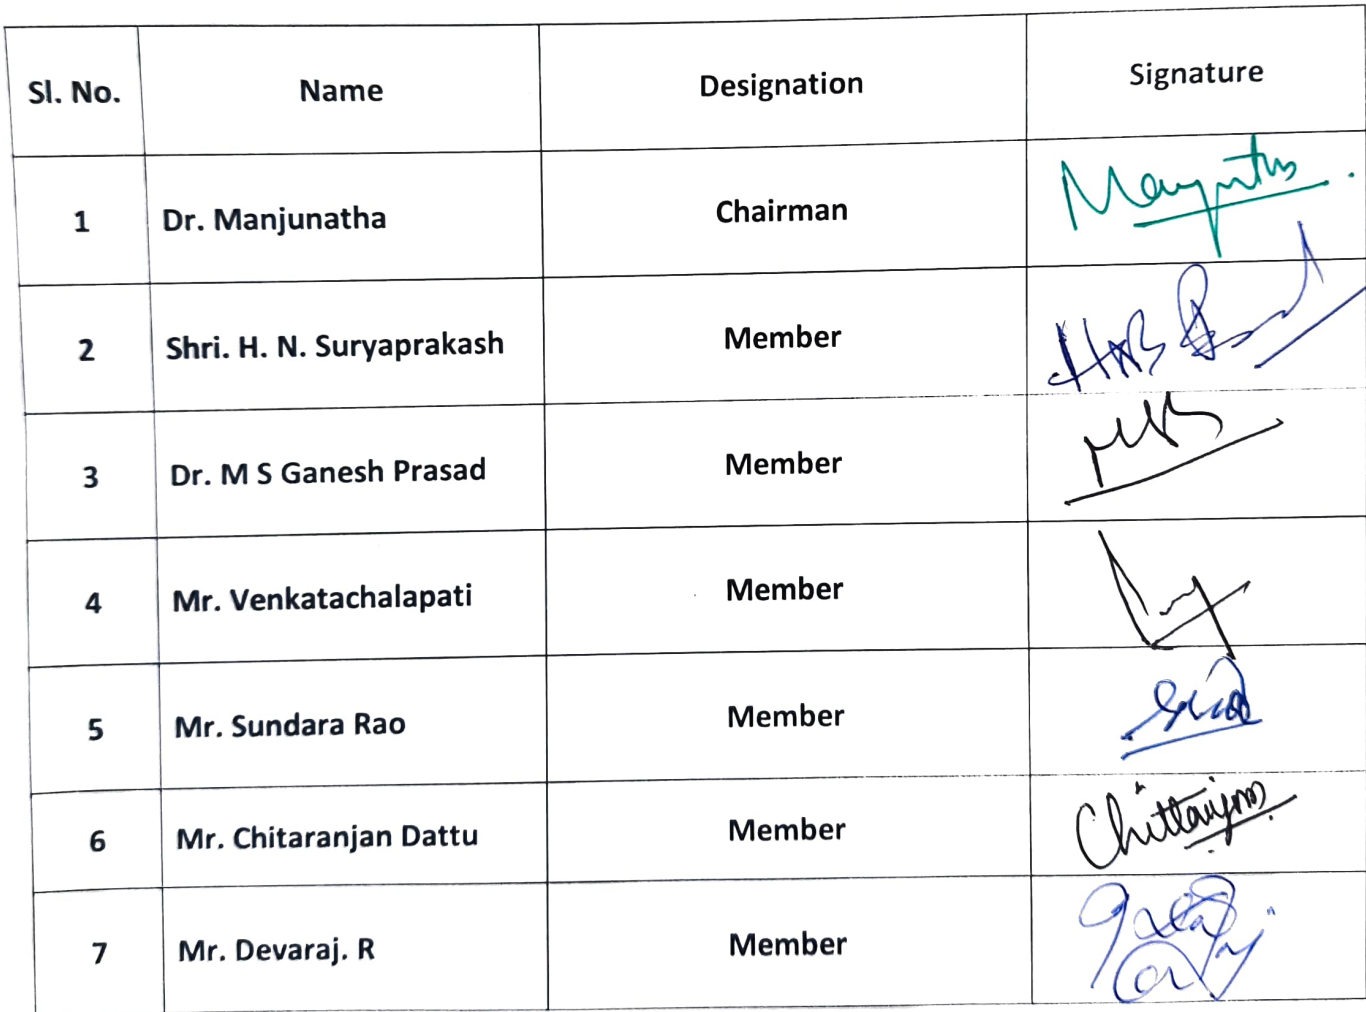 Sl. No. Name Designation Signature
1 Dr. Manjunatha Chairman
2 Shri. H. N. Suryaprakash Member
3 Dr. M S Ganesh Prasad Member
4 Mr. Venkatachalapati Member
5 Mr. Sundara Rao Member
6 Mr. Chitaranjan Dattu Member
7 Mr. Devaraj. R Member